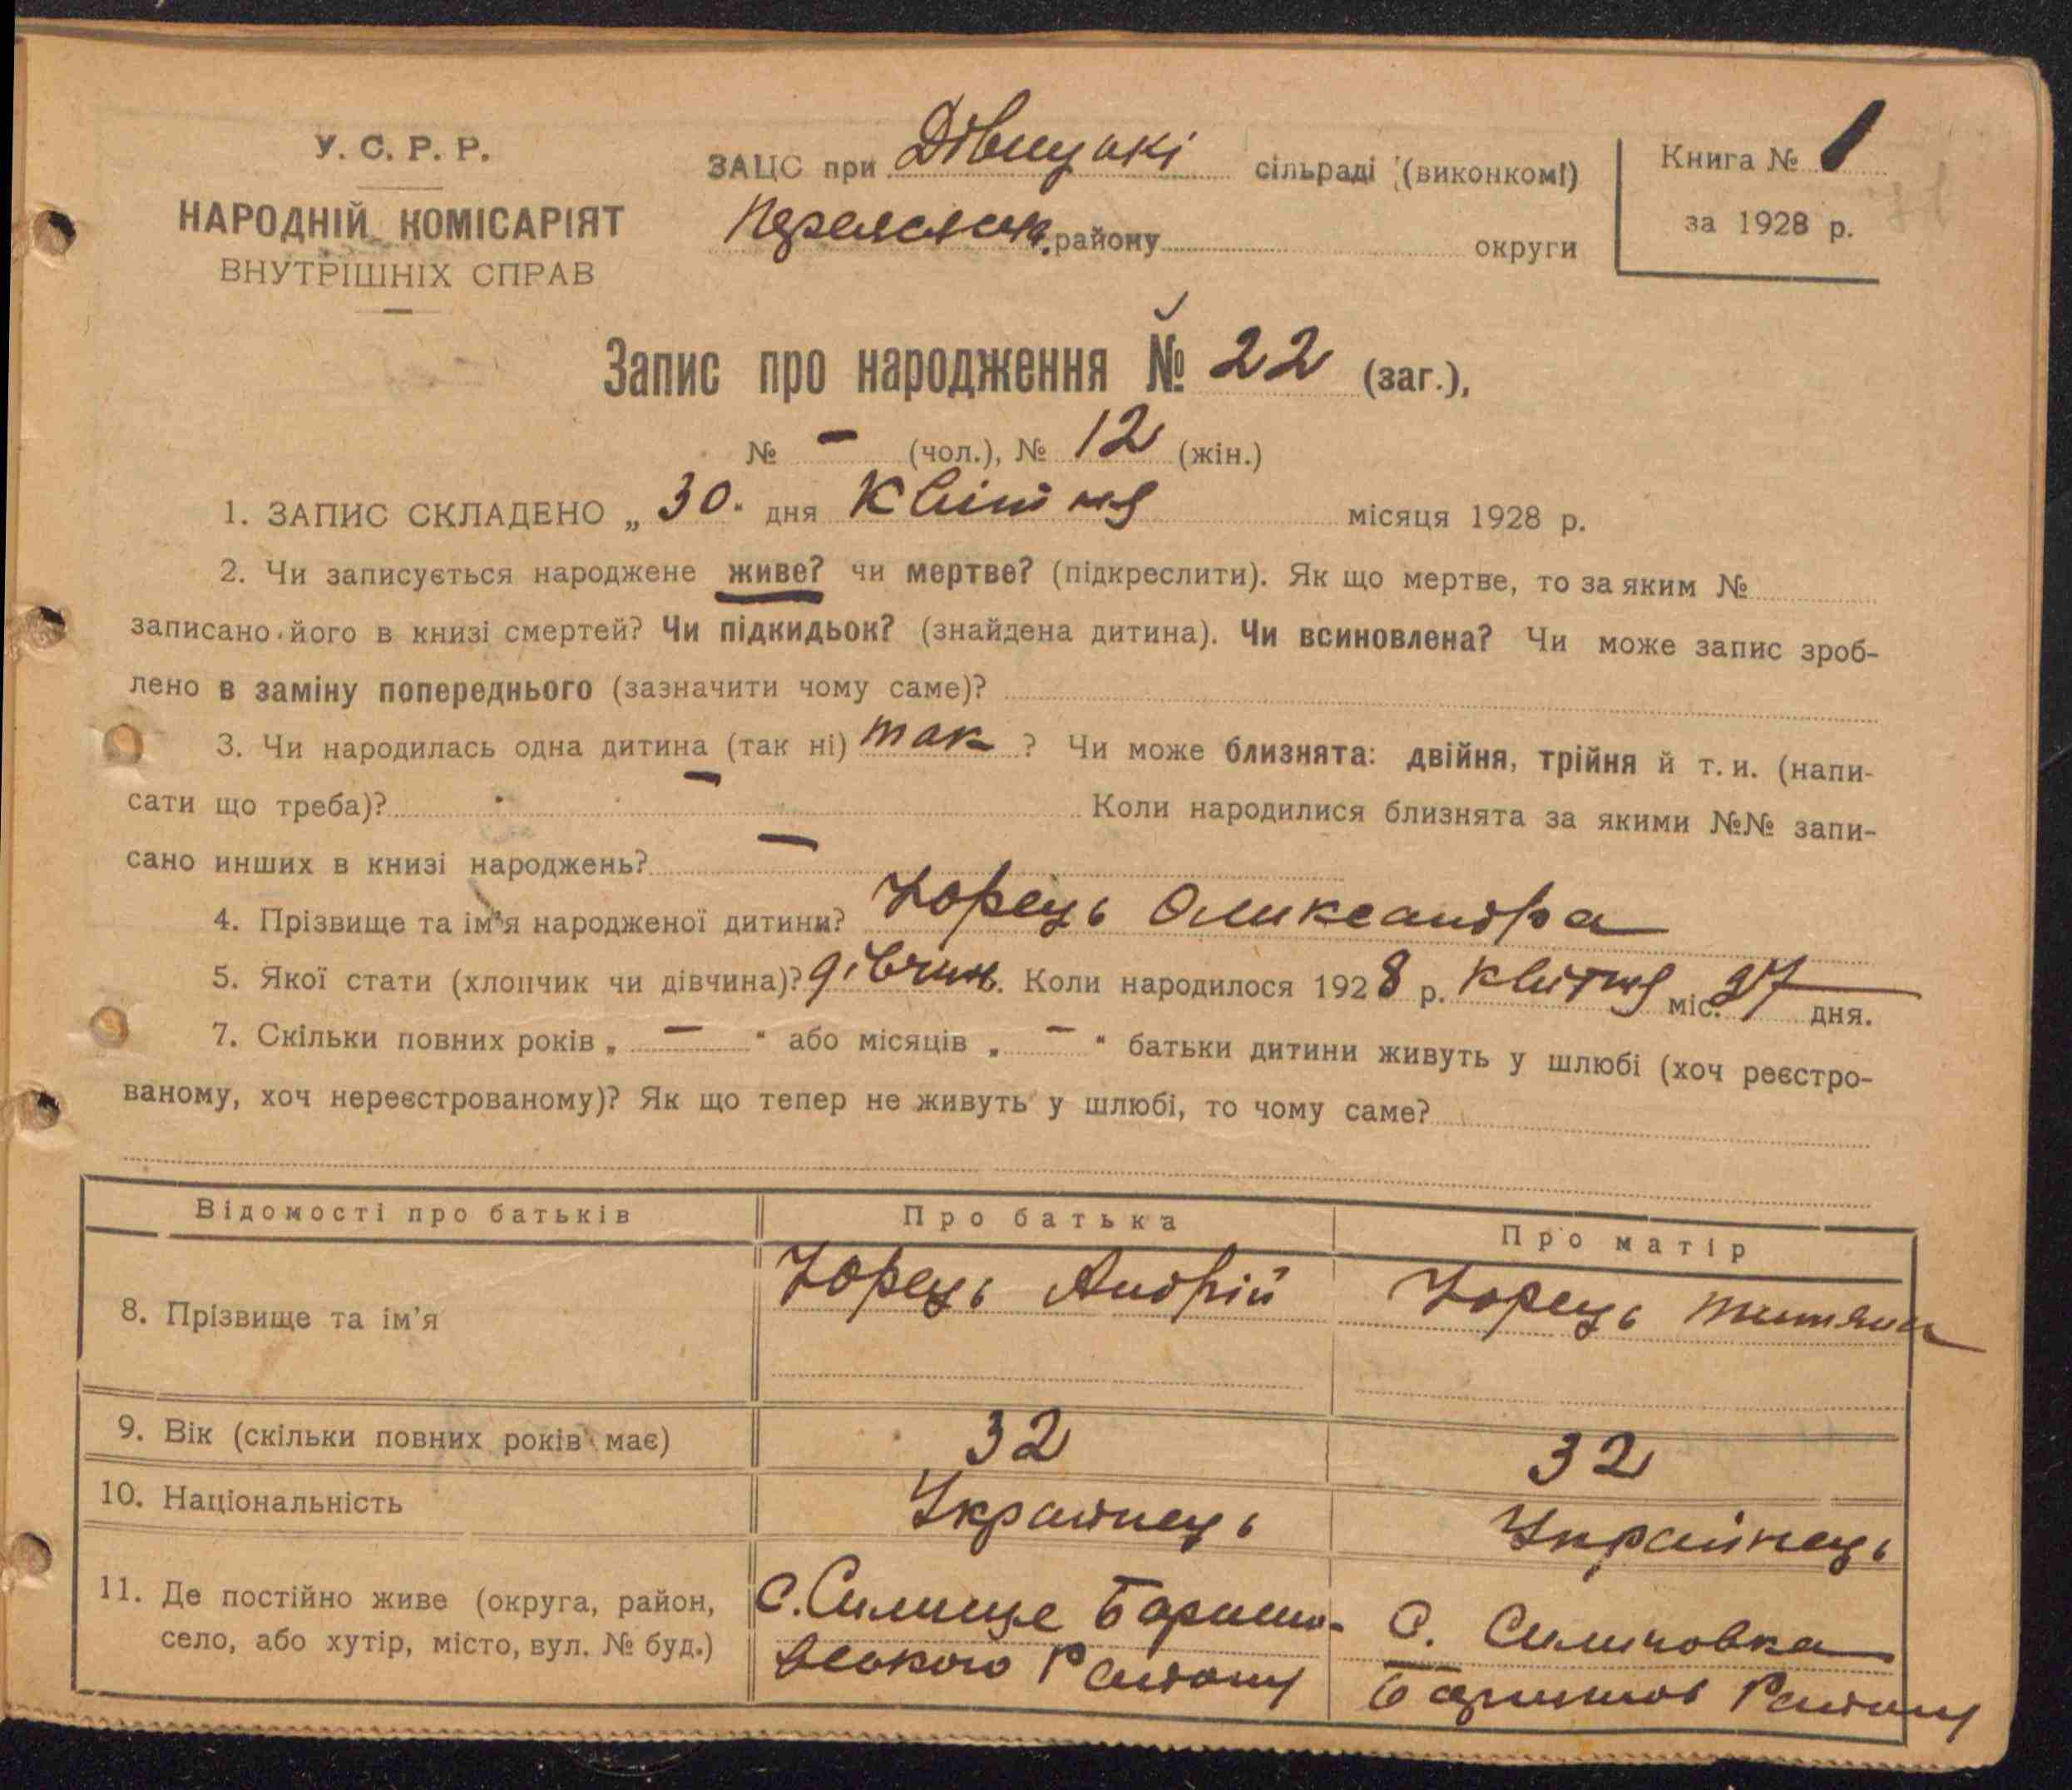 У. С. Р. Р.
НАРОДНІЙ КОМІСАРІЯТ
ВНУТРІШНІХ СПРАВ
ЗАЦС при Дівицькі сільраді (виконкомі)
Переяслав. району округи
Книга № 1
за 1928 р.
Запис про народження № 22 (заг.),
№ – (чол.), № 12 (жін.)
1. ЗАПИС СКЛАДЕНО „ 30 " дня Квітня місяця 1928 р.
2. Чи записується народжене живе? чи мертве? (підкреслити). Як що мертве, то за яким №
записано його в книзі смертей? Чи підкидьок? (знайдена дитина). Чи всиновлена? Чи може запис зроб-
лено в заміну попереднього (зазначити чому саме)?
3. Чи народилась одна дитина (так ні) так ? Чи може близнята: двійня, трійня й т. и. (напи-
сати що треба)? – Коли народилися близнята за якими №№ запи-
сано инших в книзі народжень? –
4. Прізвище та ім'я народженої дитини? Юрець Олександра
5. Якої стати (хлопчик чи дівчина)? дівчин. Коли народилося 1928 р. квітня міс. 27 дня.
7. Скільки повних років „ – " або місяців „ – " батьки дитини живуть у шлюбі (хоч реєстро-
ваному, хоч нереєстрованому)? Як що тепер не живуть у шлюбі, то чому саме?
Відомості про батьків Про батька Про матір
8. Прізвище та ім'я Юрець Андрій Юрець Титяна
9. Вік (скільки повних років має) 32 32
10. Національність Українець Українець
11. Де постійно живе (округа, район,
село, або хутір, місто, вул. № буд.)
с. Силище Баришо-
вського Району
С. Силичовка
Баришов Району